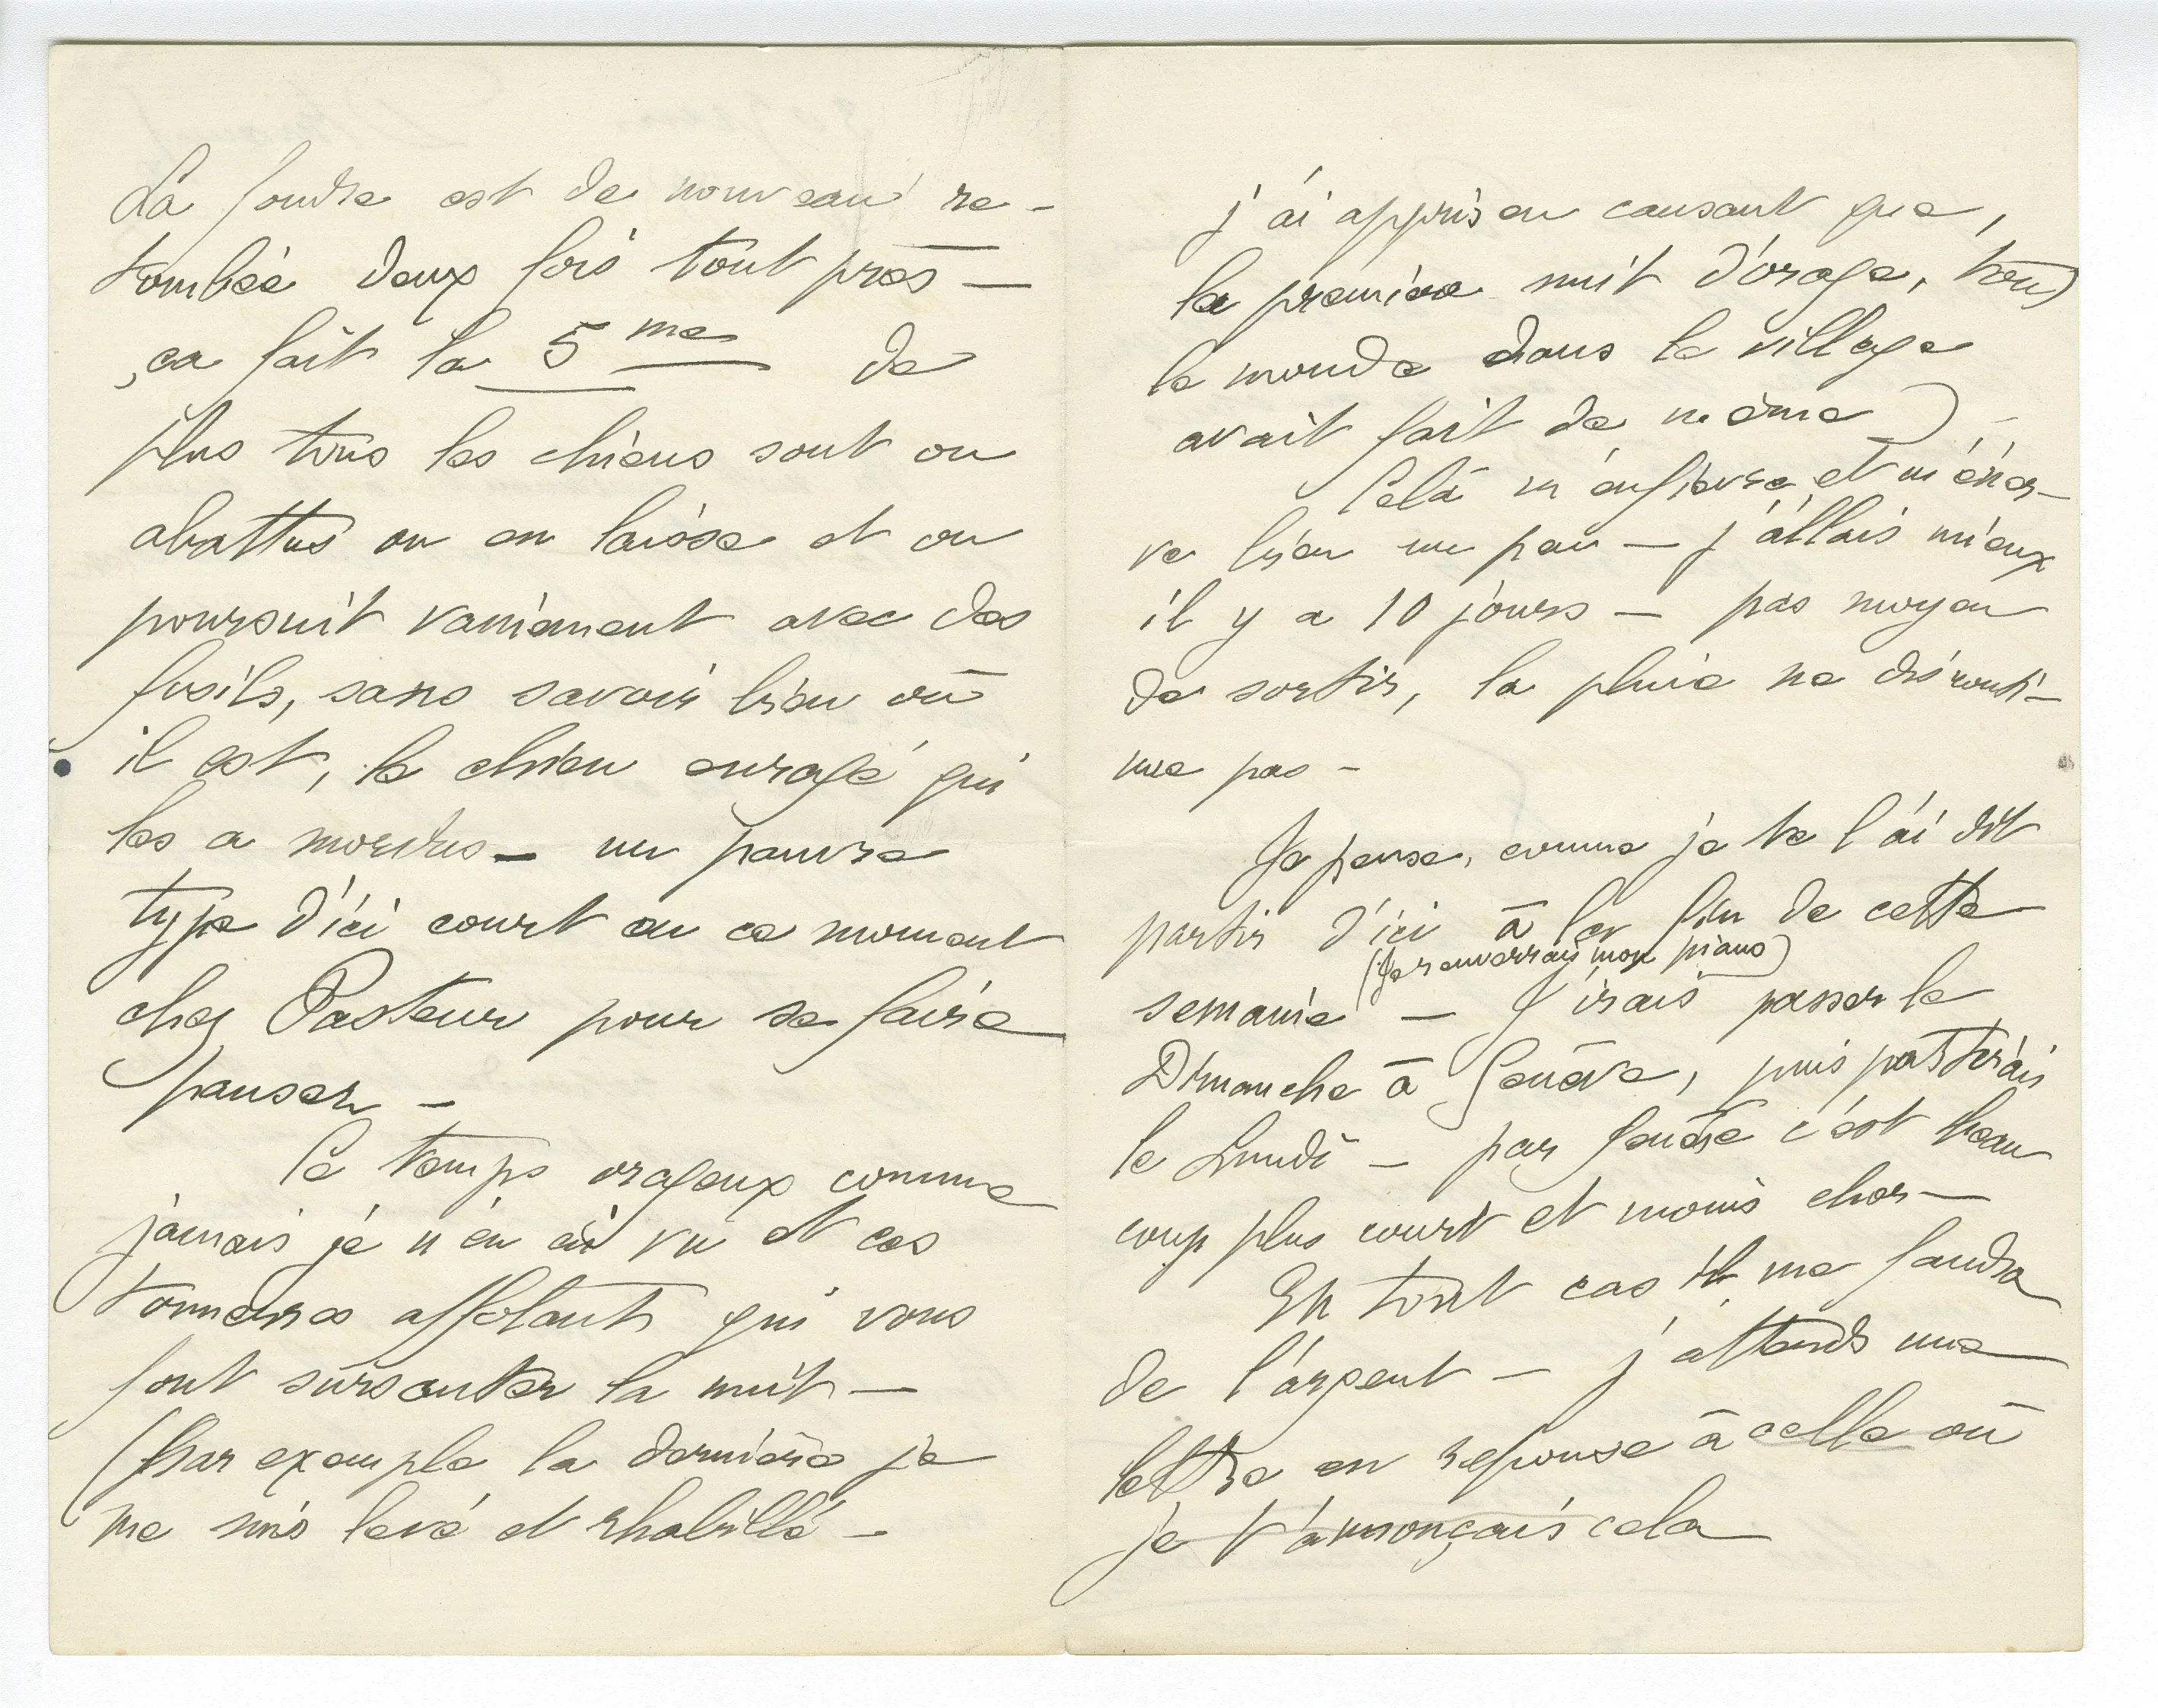 La foudre est de nouveau re-
tombée deux fois tout près —
ça fait la 5me de
plus tous les chiens sont ou
abattus ou en laisse et on
poursuit vainement avec des
fusils, sans savoir bien où
il est, le chien enragé qui
les a mordus — un pauvre
type d'ici court en ce moment
chez Pasteur pour se faire
panser —
Ce temps orageux comme
jamais je n'en ai vu et ces
tonnerres affolants qui vous
font sursauter la nuit —
(par exemple la dernière je
me suis levé et rhabillé —
j'ai appris en causant que,
la première nuit d'orage, tout
le monde dans le village
avait fait de même) —
Celà m'enfièvre et m'éner-
ve bien un peu — j'allais mieux
il y a 10 jours — pas moyen
de sortir, la pluie ne disconti-
nue pas —
Je pense, comme je te l'ai dit
partir d'ici à la fin de cette
(Je renverrais mon piano)
semaine — J'irais passer le
Dimanche à Genève, puis partirais
le Lundi — par Genève c'est beau
coup plus court et moins cher —
En tout cas il me faudra
de l'argent — j'attends une
lettre en réponse à celle où
je t'annonçais cela